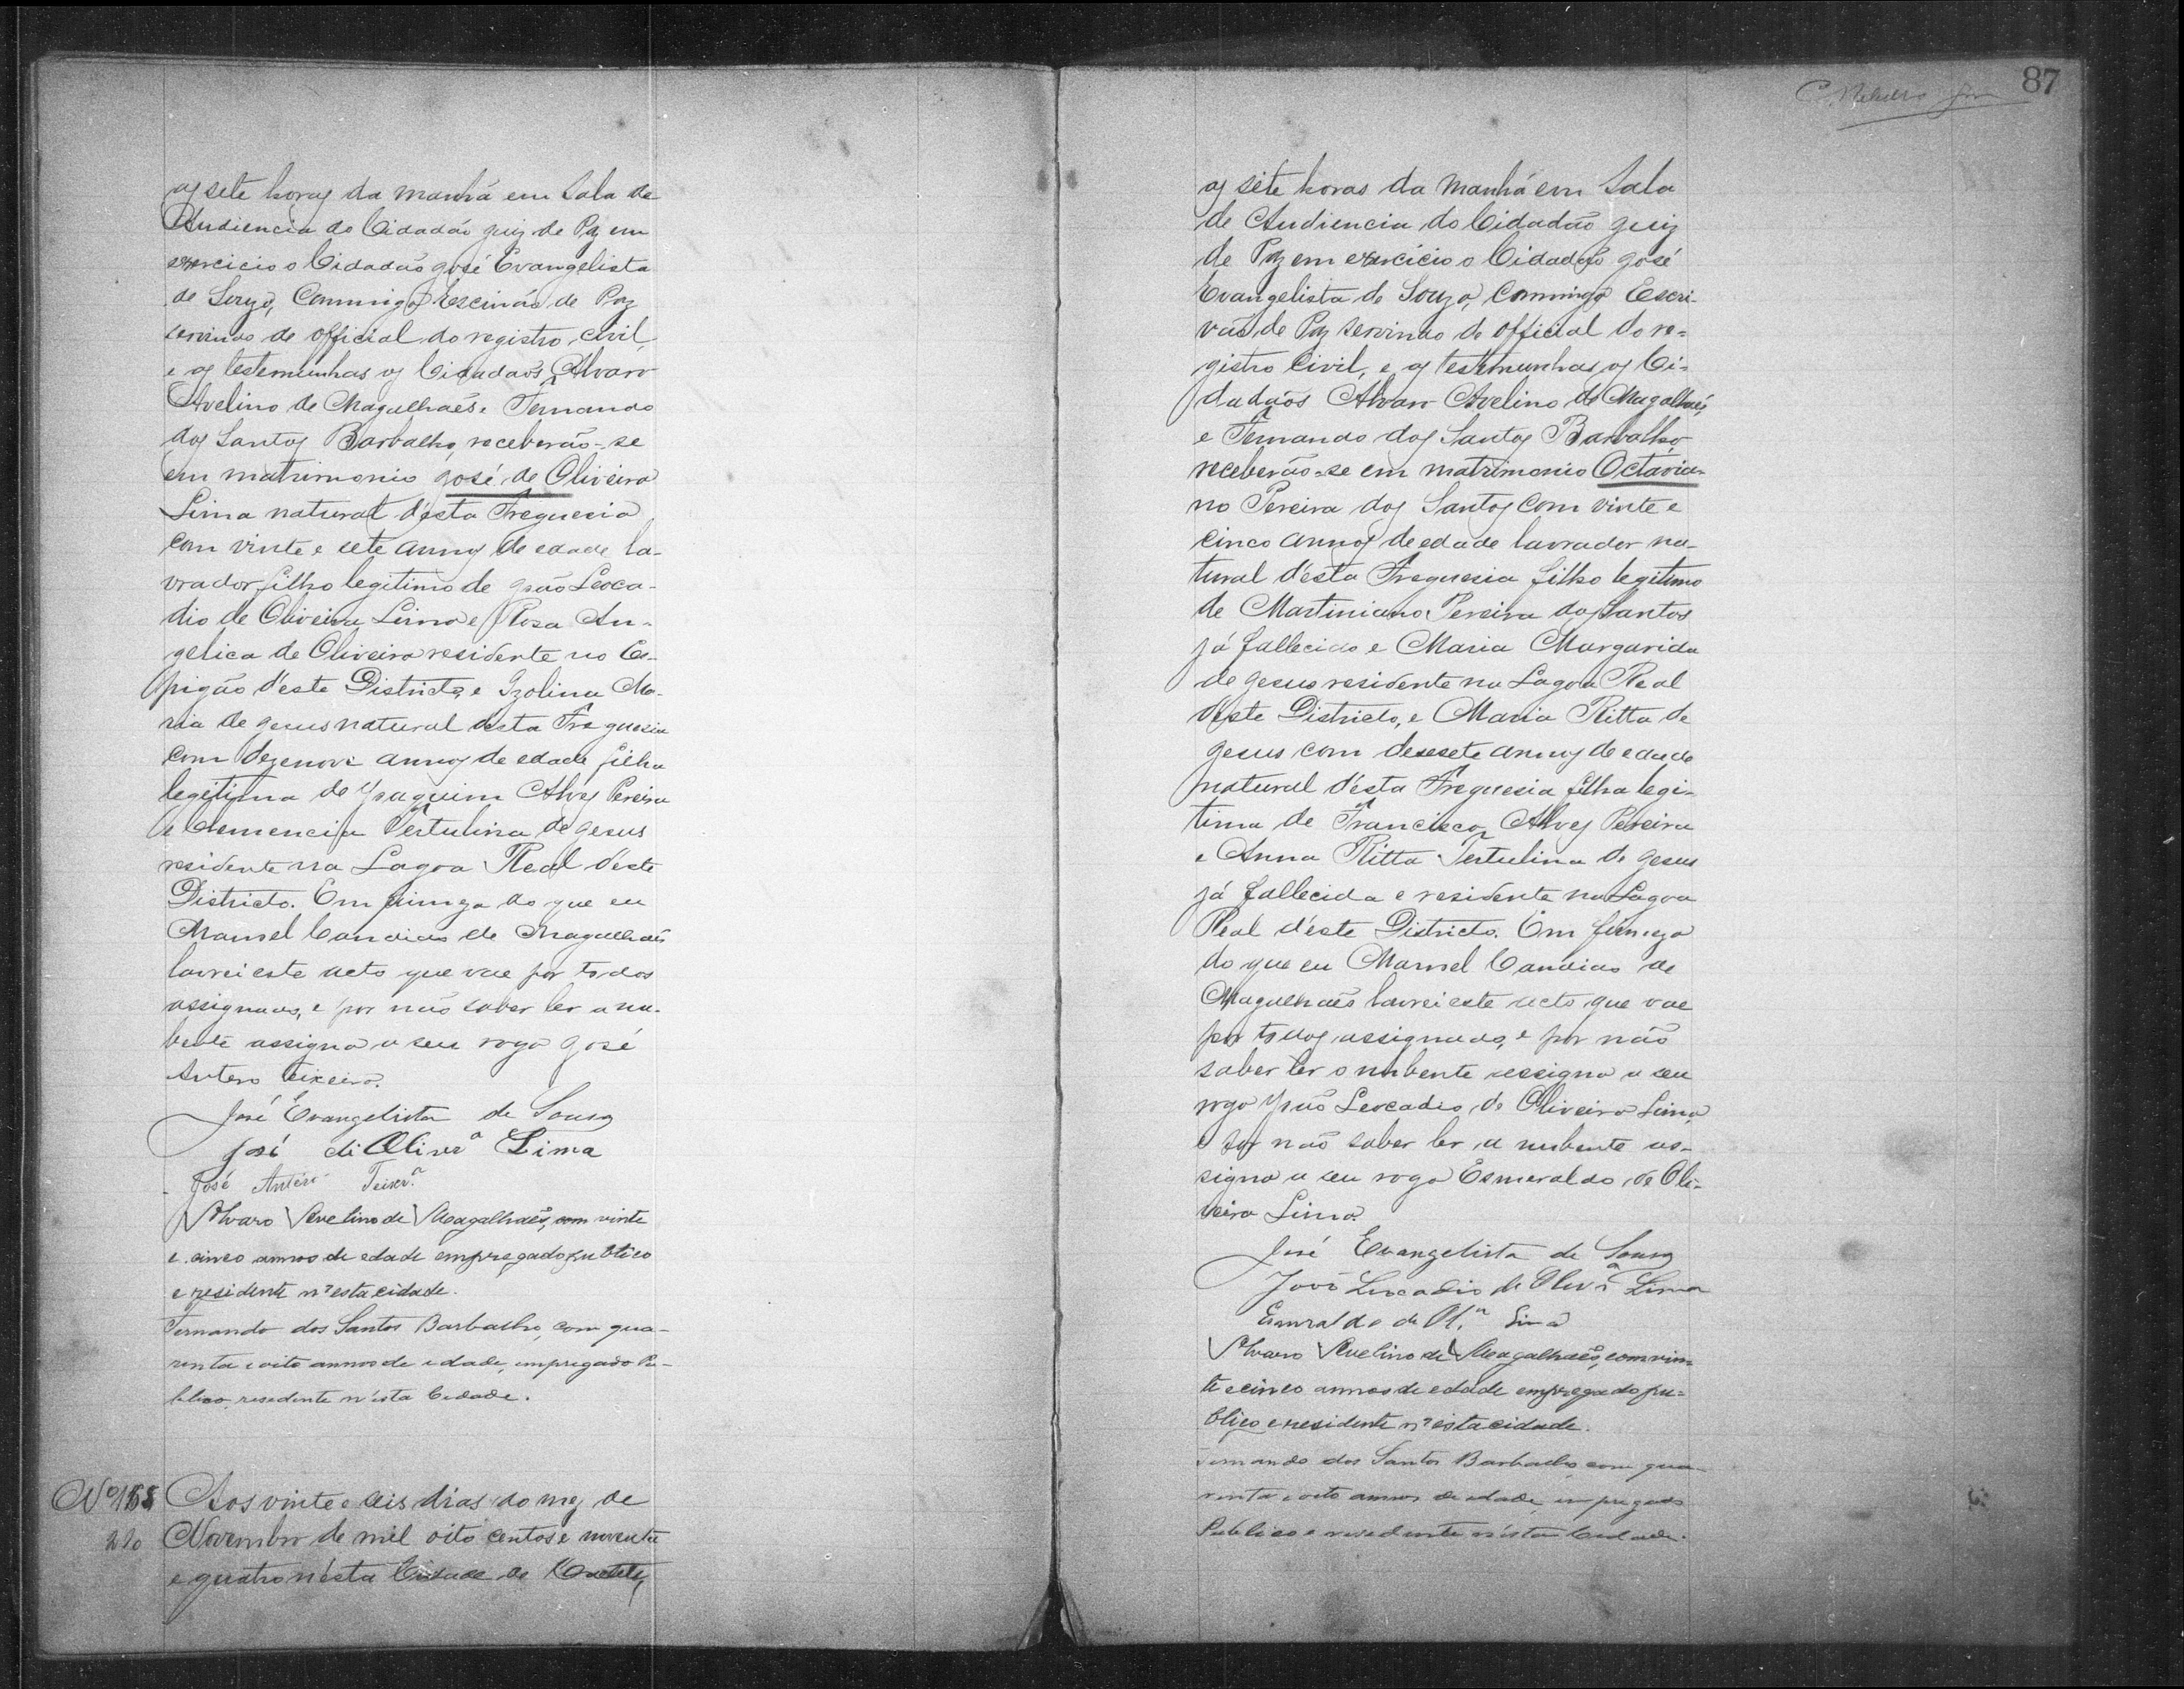 as sete horas da manhã em Sala de
Audiencia do Cidadão Juiz de Paz em
exercicio o Cidadão José Evangelista
de Souza, Commigo Escrivão de Paz
servindo de official do registro civil,
e as testemunhas os Cidadaõs Alvaro
Avelino de Magalhaẽs e Fernando
dos Santos Barbalho, receberão-se
em matrimonio José de Oliveira
Lima natural d'esta Freguesia
com vinte e sete annos de edade la-
vrador filho legitimo de João Leoca-
dio de Oliveira Lima e Rosa An-
gelica de Oliveira residente no Es-
pigão d'este Districto, e Izolina Ma-
ria de Jesus natural desta Freguesia
com dezenove annos de edade filha
legitima de Joaquim Alves Pereira
e Clemencia Tertulina de Jesus
residente na Lagoa Real d'este
Districto. Em firmeza do que eu
Manoel Candido de Magalhaẽs
lavrei este acto que vae por todos
assignados, e por não saber ler a nu-
bente assigna a seu rogo José
Antero Teixeira.
José Evangelista de Souza
José di Olivrª Lima
José Antero Teixrª
Alvaro Avelino de Magalhaẽs, com vinte
e cinco annos de edade empregado publico
e residente n'esta cidade.
Fernando dos Santos Barbalho, com qua-
renta e oito annos de edade, empregado Pu-
blico, resedente n'esta Cidade.
Nº 188
Aos vinte e seis dias do mez de
Novembro de mil oito centos e noventa
e quatro n'esta Cidade de Caetete,
87
as sete horas da manhã em Sala
de Audiencia do Cidadão Juiz
de Paz em exercicio o Cidadão José
Evangelista de Souza, Commigo Escri-
vão de Paz servindo de official do re-
gistro Civil, e as testemunhas, os Ci-
dadaõs Alvaro Avelino de Magalhaẽs,
e Fernando dos Santos Barbalho,
receberão-se em matrimonio Octavia-
no Pereira dos Santos com vinte e
cinco annos de edade lavrador na-
tural d'esta Freguesia filho legitimo
de Martiniano Pereira dos Santos
já fallecido e Maria Margarida
de Jesus residente na Lagoa Real
d'este Districto, e Maria Ritta de
Jesus com desesete annos de edade
natural d'esta Freguesia filha legi-
tima de Francisco Alves Pereira
e Anna Ritta Tertulina de Jesus
já fallecida e residente na Lagoa
Real d'este Districto. Em firmeza
do que eu Manoel Candido de
Magalhaẽs lavrei este acto que vae
por todos assignado, e por não
saber ler o nubente assigna a seu
rogo João Leocadio de Oliveira Lima,
e por não saber ler a nubente as-
signa a seu rogo Esmeraldo de Oli-
veira Lima.
José Evangelista de Souza
João Leocadio de Olivrª Lima
Esmeraldo de Olª Lima
Alvaro Avelino de Magalhaẽs, com vin-
te e cinco annos de edade empregado pu-
blico e residente n'esta cidade.
Fernando dos Santos Barbalho com qua-
renta e oito annos de edade, empregado
Publico e resedente n'esta Cidade.